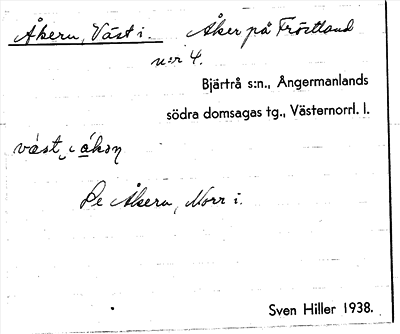 Åkern, Väst i. Åker på Fröstland
n:r 4.
Bjärtrå s:n., Ångermanlands
södra domsagas tg., Västernorrl. l.
väst i åkən
Se Åkern, Norr i.
Sven Hiller 1938.